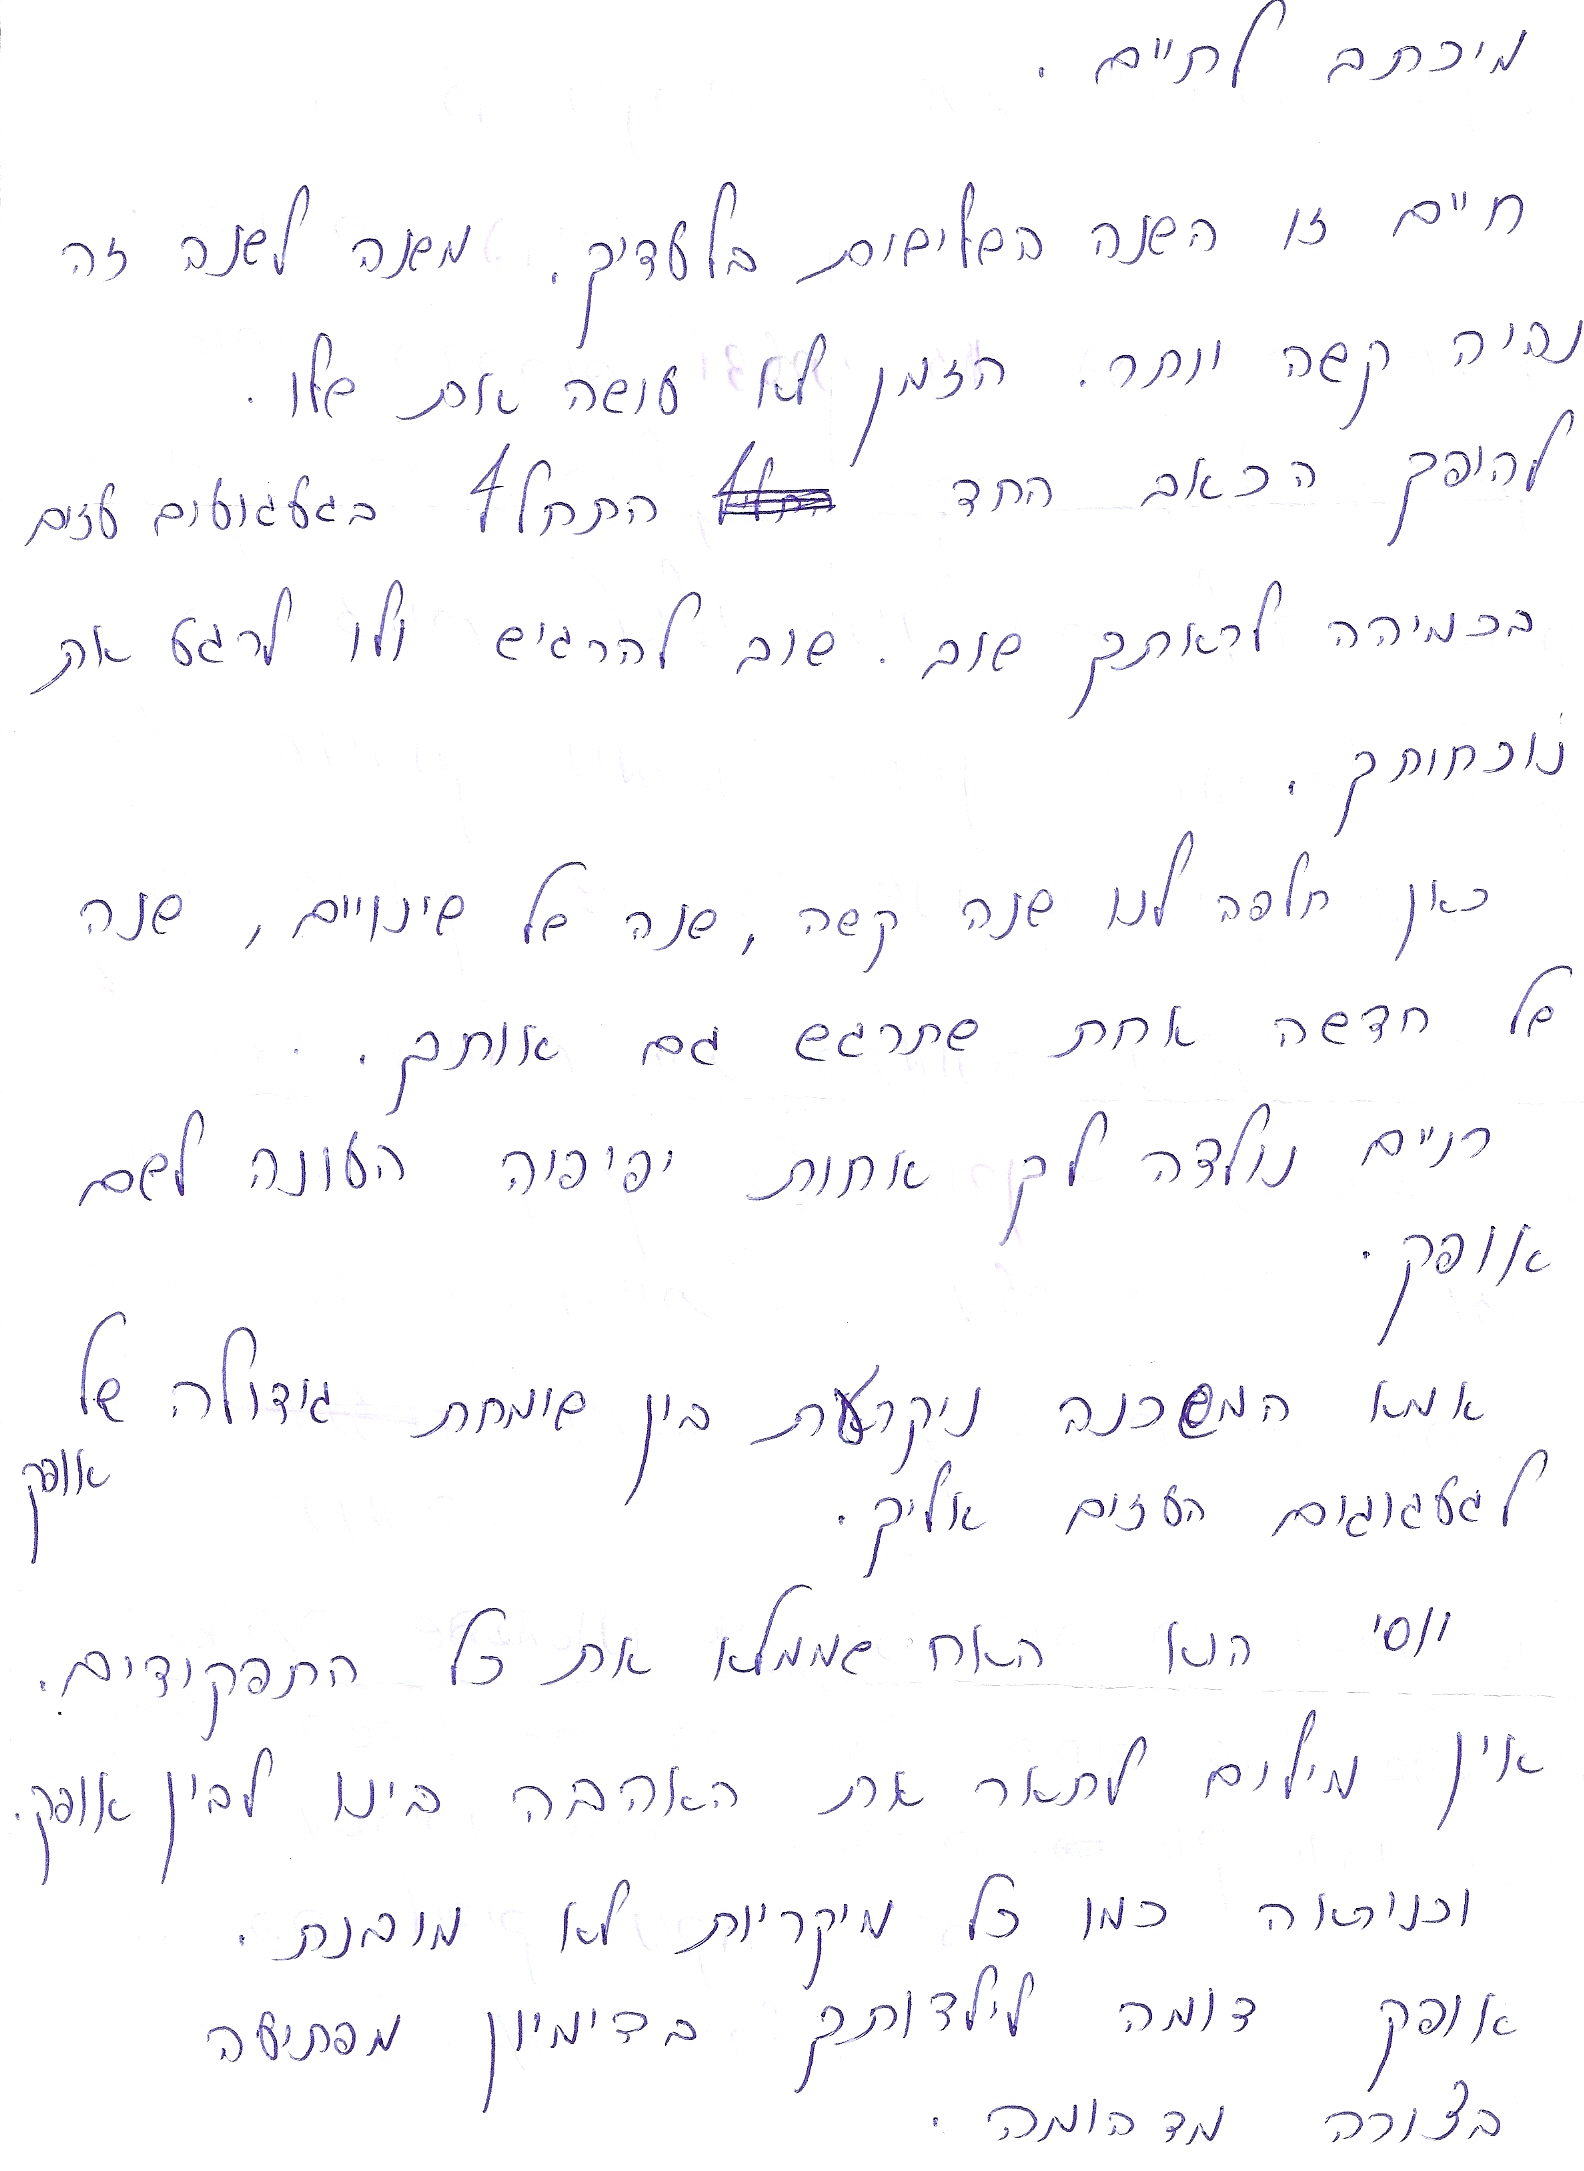 מיכתב לחיים.
חיים זו השנה השלישית בלעדיך. משנה לשנה זה
נהיה קשה יותר. הזמן לא עושה את שלו.
להיפך הכאב החד התחלף בגעגועים עזים
בכמיהה לראותך שוב. שוב להרגיש ולו לרגע את
נוכחותך.
כאן חלפה לנו שנה קשה, שנה של שינויים, שנה
של חדשה אחת שתרגש גם אותך.
נולדה לך אחות יפיפיה העונה לשם
אופק.
אמא המסכנה ניקרעת בין שימחת גידולה של
אופק
לגעגוגים העזים אליך.
יוסי הוא האח שממלא את כל התפקודים.
אין מילים לתאר את האהבה בינו לבין אופק.
וכניראה כמו כל מיקריות לא מובנת.
אופק דומה לילדותך בדימיון מפתיעה
בצורה מדהומה.